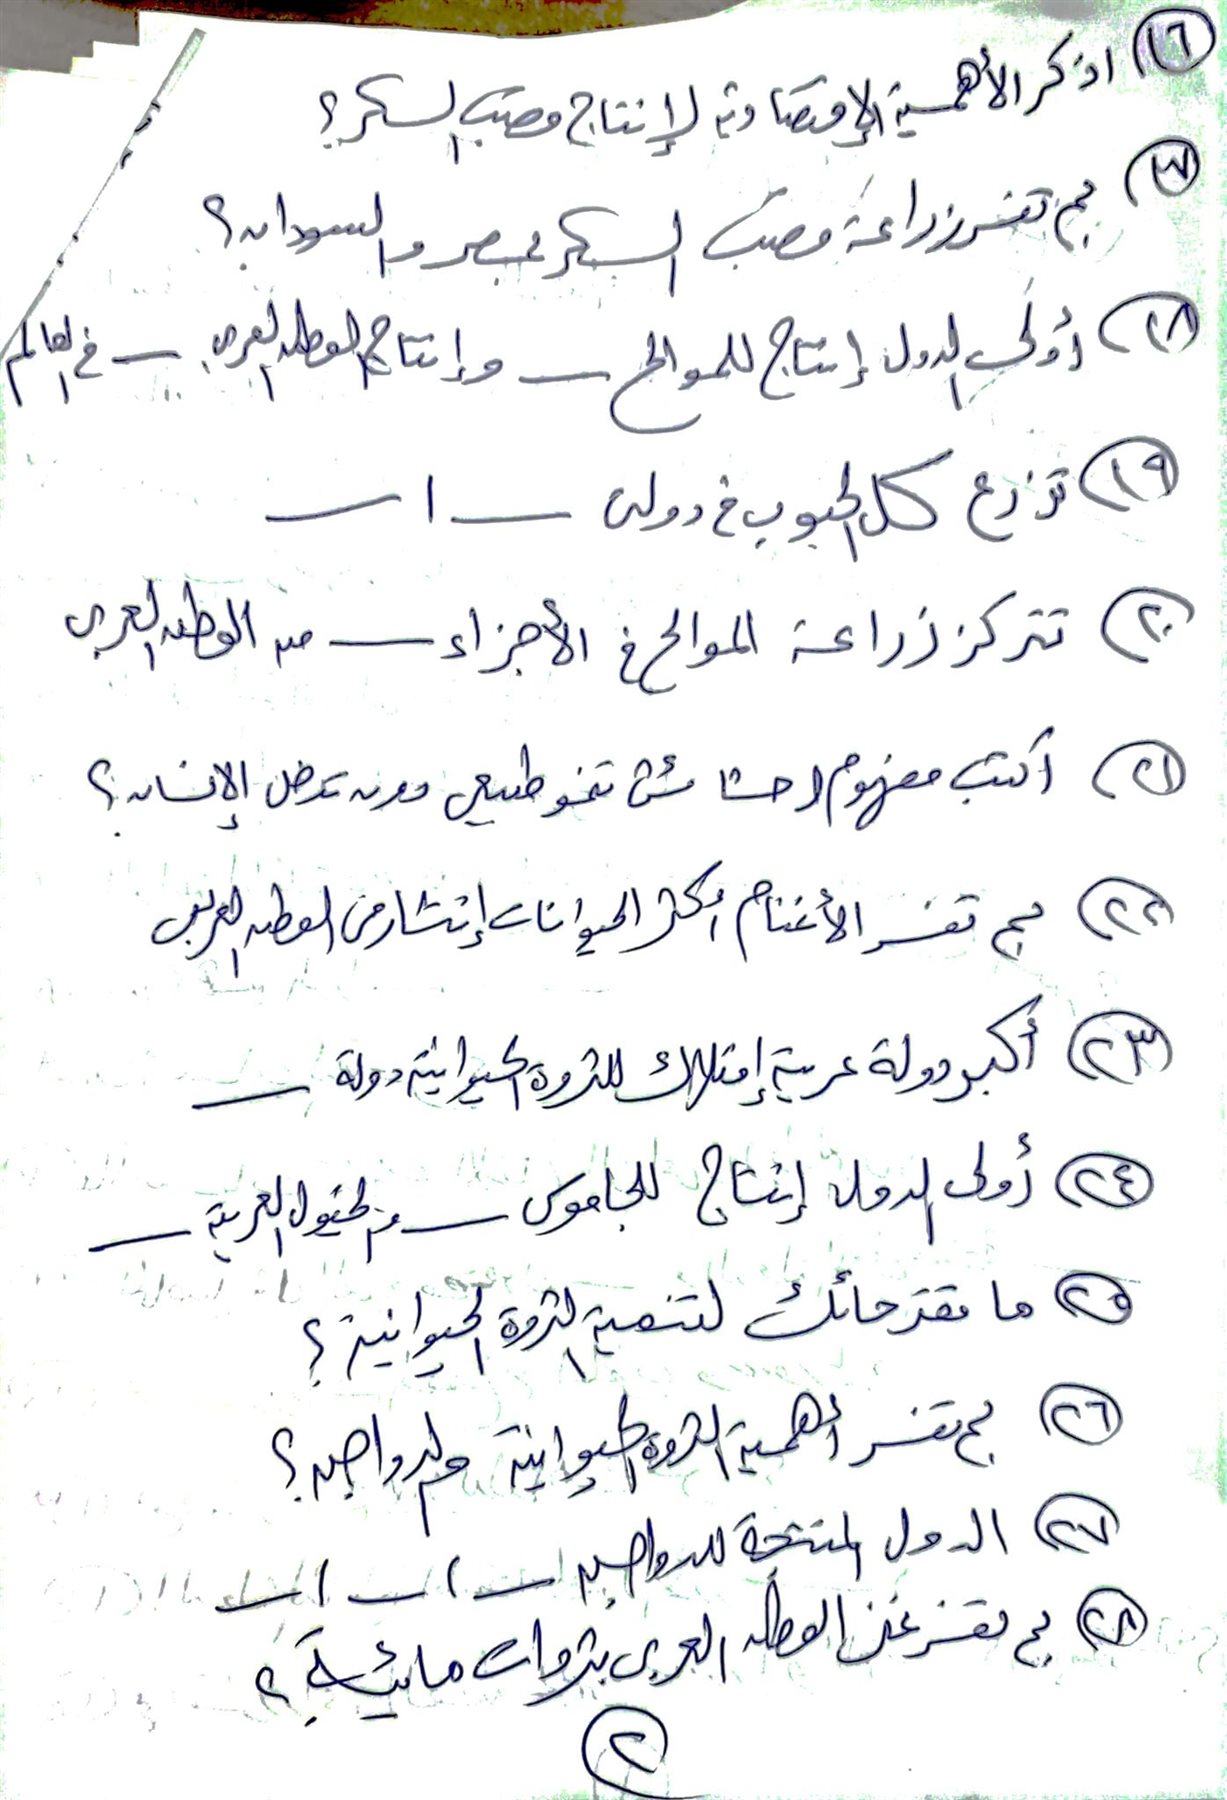 ١٦ اذكر الأهمية الإقتصادية لإنتاج قصب السكر؟
١٧ بم تفسر زراعة قصب السكر بمصر والسودان؟
١٨ أولى الدول إنتاج للموالح ـــ وإنتاج الوطن العربى ـــ فى العالم
١٩ تزرع كل الحبوب فى دولتى ـــ ا ـــ
٢٠ تتركز زراعة الموالح فى الأجزاء ـــ من الوطن العربى
٢١ أكتب مفهوم ا حشائش تنمو طبيعى دون تدخل الإنسان؟
٢٢ بم تفسر الأغنام أكثر الحيوانات إنتشار فى الوطن العربى
٢٣ أكبر دولة عربية إمتلاك للثروة الحيوانية دولة ـــ
٢٤ أولى الدول إنتاج للجاموس ـــ والخيول العربية ـــ
٢٥ ما مقترحاتك لتنمية الثروة الحيوانية؟
٢٦ بم تفسر أهمية الثروة الحيوانية والدواجن؟
٢٧ الدول المنتجة للدواجن ـــ ا ـــ ا ـــ
٢٨ بم تفسر غنى الوطن العربى بثروات مائية؟
٢